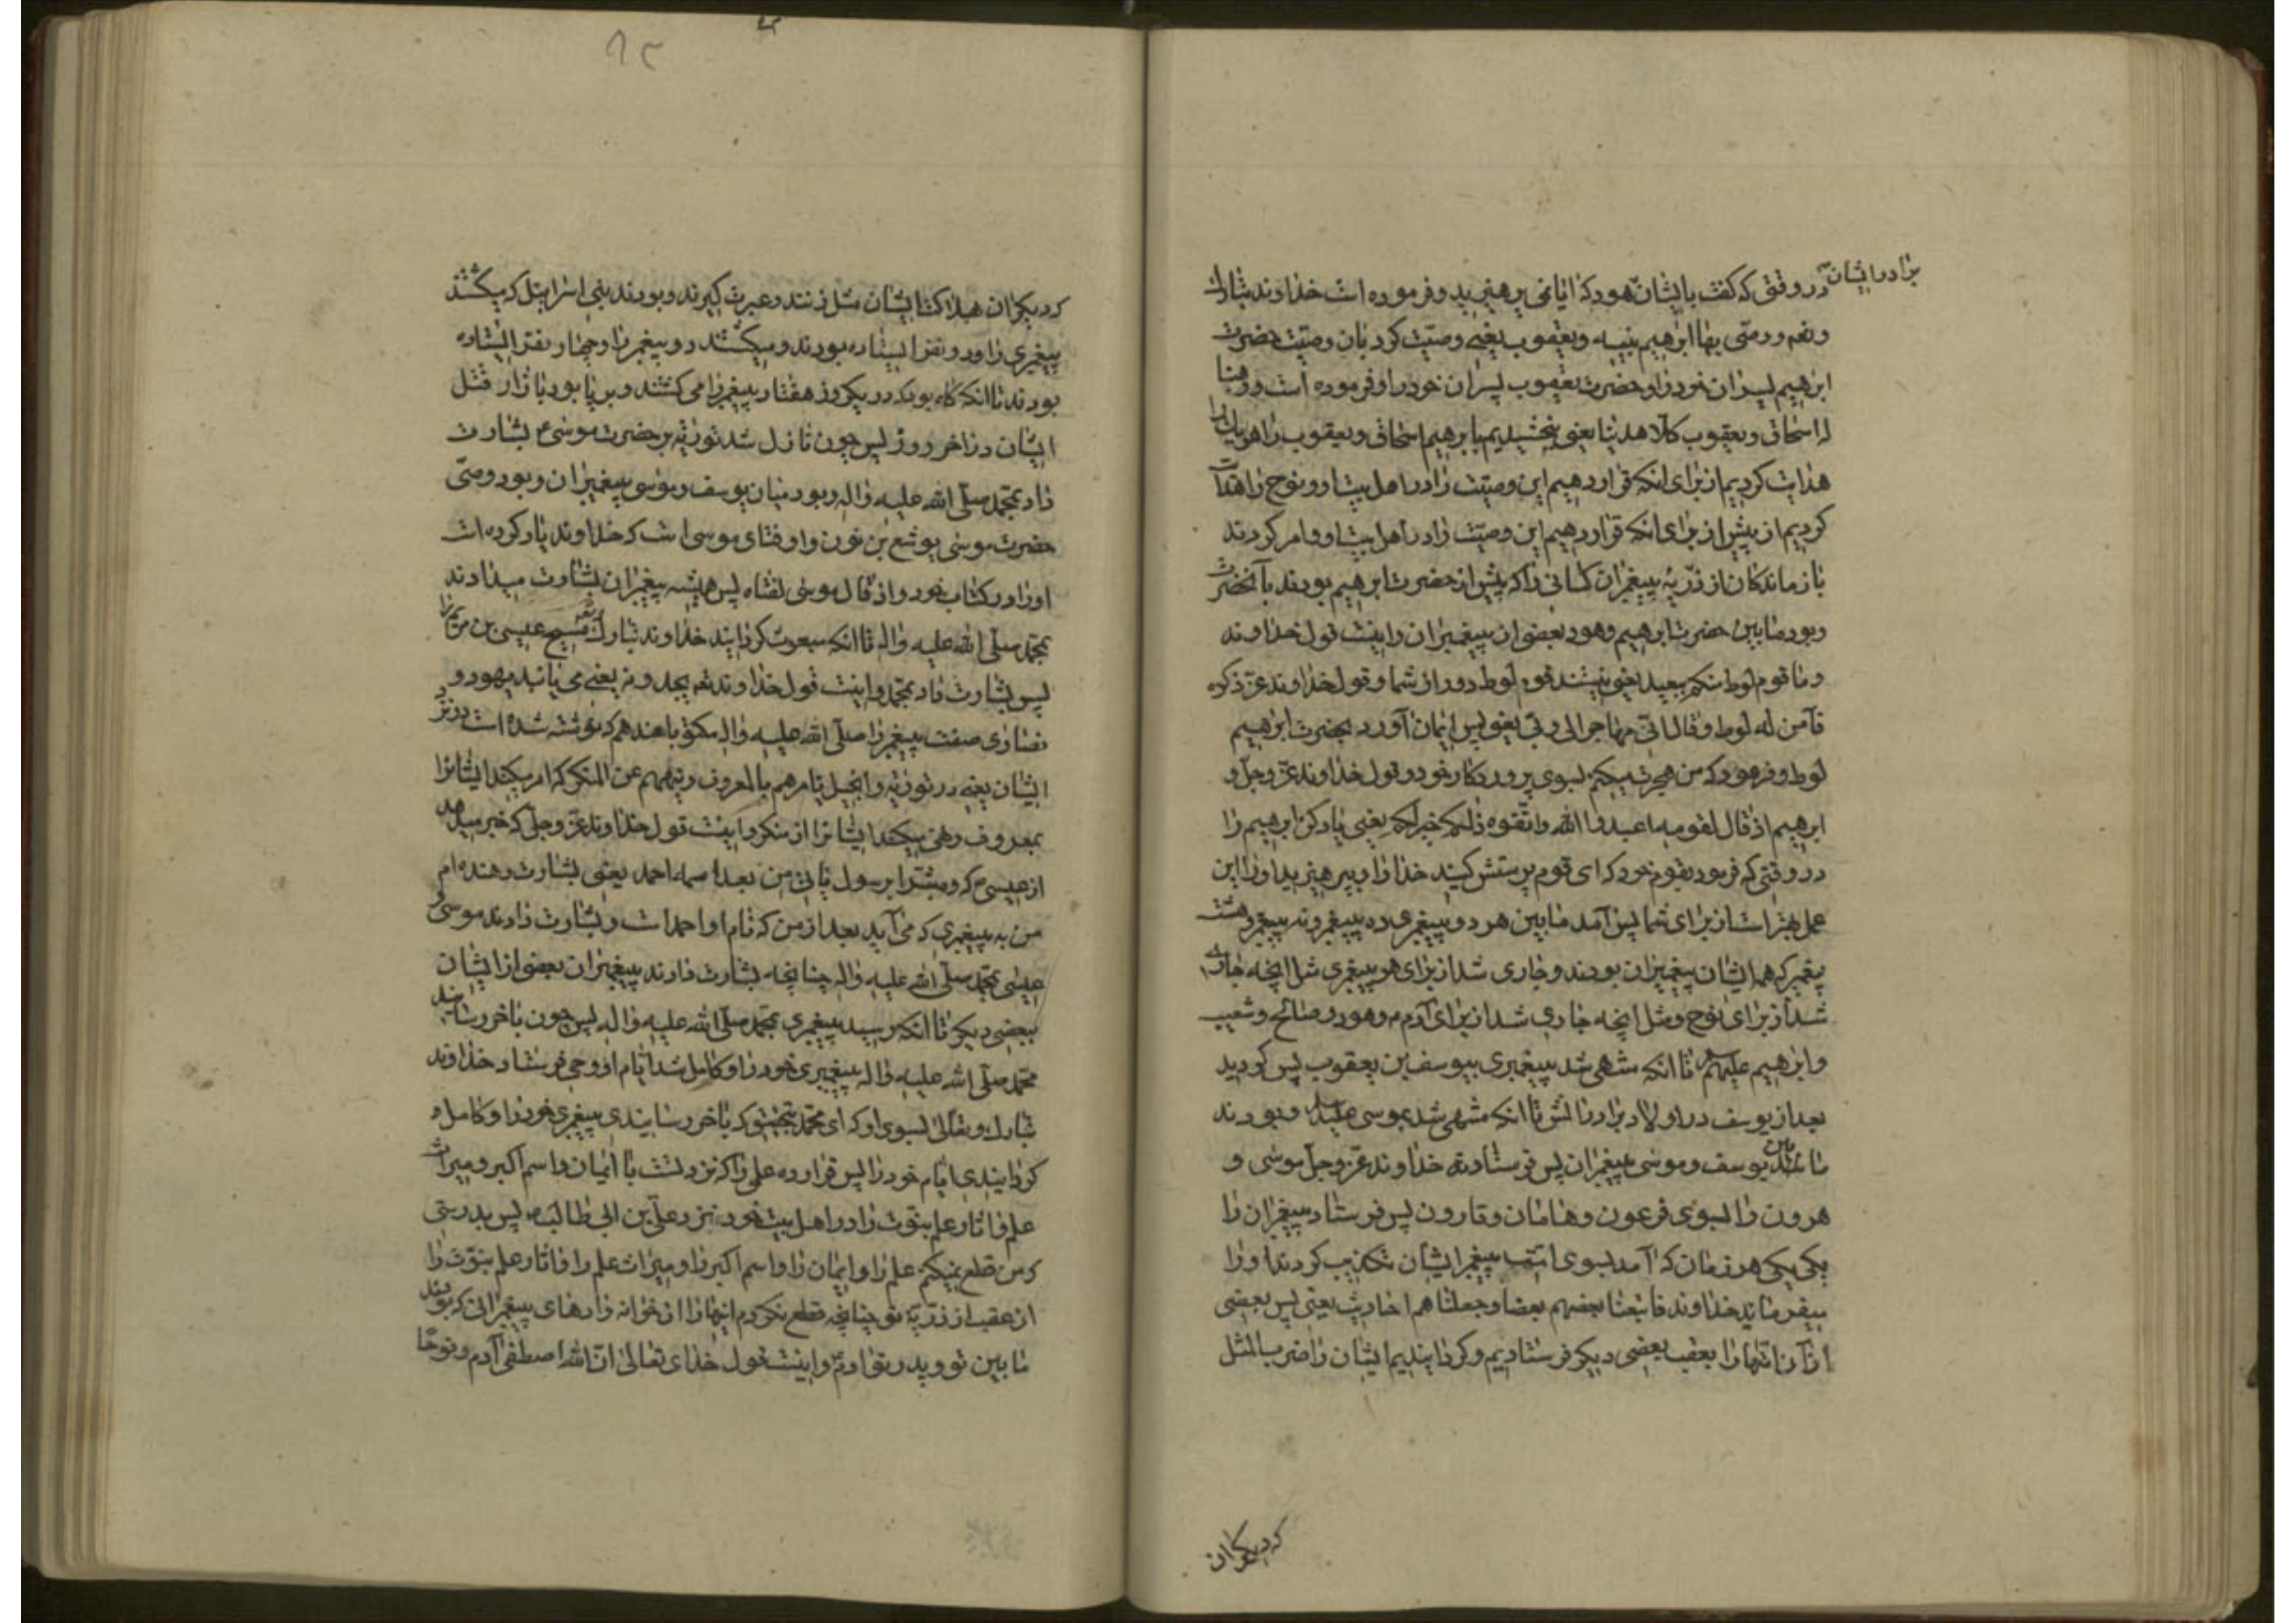 برادر ایشان در وقتی که گفت بایشان هود که ایا نمی پرهیزید و فرموده است خداوند تبارك
و تعه و وصّی بها ابرهیم بنیه و یعقوب یعنی وصیّت کرد بان وصیّت حضرت
ابرهیم پسران خود را و حضرت یعقوب پسران خود را و فرموده است و وهبنا
له اسحاق و یعقوب کلّا هدینا یعنی بخشیدیم بابرهیم اسحاق و یعقوب را هر یك را
هدایت کردیم از برای انکه قرار دهیم این وصیّت را در اهل بیت او و نوح را هدایت
کردیم از پیش از برای انکه قرار دهیم این وصیّت را در اهل بیت او و امر کردند
بازماندکان از ذرّیهٔ پیغمبران کسانی را که پیش از حضرت ابرهیم بودند بآنحضرت
و بود ما بین حضرت ابرهیم و هود بعضی از پیغمبران و اینست قول خداوند
و ما قوم لوط منکم ببعید یعنی نیستند قوم لوط دور از شما و قول خداوند عزّ ذکره
فآمن له لوط و قال انّی مهاجر الی ربّی یعنی پس ایمان آورد بحضرت ابرهیم
لوط و فرمود که من هجرت میکنم بسوی پروردکار خود و قول خداوند عزّ و جلّ و
ابرهیم اذ قال لقومه اعبدوا الله و اتّقوه ذلکم خیر لکم یعنی یاد کن ابرهیم را
در وقتی که فرمود بقوم خود که ای قوم پرستش کنید خدا را و بپرهیزید او را این
عمل بهتر است از برای شما پس آمد ما بین هر دو پیغمبری ده پیغمبر و نه پیغمبر و هشت
پیغمبر که همه ایشان پیغمبران بودند و جاری شد از برای هر پیغمبری مثل انچه جاری
شد از برای نوح و مثل انچه جاری شد از برای آدم و هود و صالح و شعیب
و ابرهیم علیهم تا انکه منتهی شد پیغمبری بیوسف بن یعقوب پس کردید
بعد از یوسف در اولاد برادرانش تا انکه منتهی شد بموسی علیه و بودند
ما بین یوسف و موسی پیغمبران پس فرستاد خداوند عزّ و جلّ موسی و
هرون را بسوی فرعون و هامان و قارون پس فرستاد پیغمبران را
یکی یکی هر زمان که آمد بسوی امّت پیغمبر ایشان تکذیب کردند او را
میفرماید خداوند فاتبعنا بعضهم بعضا و جعلناهم احادیث یعنی پس بعضی
از آن امّتها را بعقب بعضی دیکر فرستادیم و کردانیدیم ایشان را ضرب المثل
که دیکران
که دیکران مثل زنند و عبرت کیرند و بودند بنی اسرائیل که میکشتند
پیغمبری را و دو نفر ایستاده بودند و میکشتند دو پیغمبر را و چهار نفر ایستاده
بودند تا انکه کاه بود که در یکروز هفتاد پیغمبر را می کشتند و بر پا بود بازار قتل
ایشان در اخر روز پس چون نازل شد توریة بر حضرت موسی ع بشارت
داد بمحمّد صلّی الله علیه و اله و بود میان یوسف و موسی پیغمبران و بود وصّی
حضرت موسی یوشع بن نون و او فتای موسی است که خداوند یاد کرده است
او را در کتاب خود و اذ قال موسی لفتاه پس همیشه پیغمبران بشارت میدادند
بمحمّد صلّی الله علیه و اله تا انکه مبعوث کردانید خداوند تبارك و تعه مسیح عیسی بن مریم را
پس بشارت داد بمحمّد و اینست قول خداوند تعه یجدونه یعنی می یابند یهود و
نصاری صفت پیغمبر را صلّی الله علیه و اله مکتوبا عندهم که نوشته شده است در نزد
ایشان یعنی در توریة و انجیل یامرهم بالمعروف و ینهیهم عن المنکر که امر میکند ایشانرا
بمعروف و نهی میکند ایشانرا از منکر و اینست قول خداوند عزّ و جلّ که خبر میدهد
از عیسی ع که و مبشّرا برسول یاتی من بعدی اسمه احمد یعنی بشارت دهنده ام
من به پیغمبری که می آید بعد از من که نام او احمد است و بشارت دادند موسی و
عیسی بمحمّد صلّی الله علیه و اله چنانچه بشارت دادند پیغمبران بعضی از ایشان
ببعضی دیکر تا انکه رسید پیغمبری بمحمّد صلّی الله علیه و اله پس چون باخر رسانید
محمّد صلّی الله علیه و اله پیغمبری خود را و کامل شد ایّام او وحی فرستاد خداوند
تبارك و تعالی بسوی او که ای محمّد بتحقیق که باخر رسانیدی پیغمبری خود را و کامل
کردانیدی ایّام خود را پس قرار ده علمی را که نزد تست با ایمان و اسم اکبر و میراث
علم و اثار علم نبوّت را در اهل بیت خود نزد علیّ بن ابی طالب پس بدرستی
که من قطع نمیکنم علم را و ایمان را و اسم اکبر را و میراث علم را و اثار علم نبوّت را
از عقب از ذرّیّهٔ تو چنانچه قطع نکردم اینها را از خوانه زادهای پیغمبرانی که بودند
ما بین تو و پدر تو ادم و اینست قول خدای تعالی انّ الله اصطفی آدم و نوحا